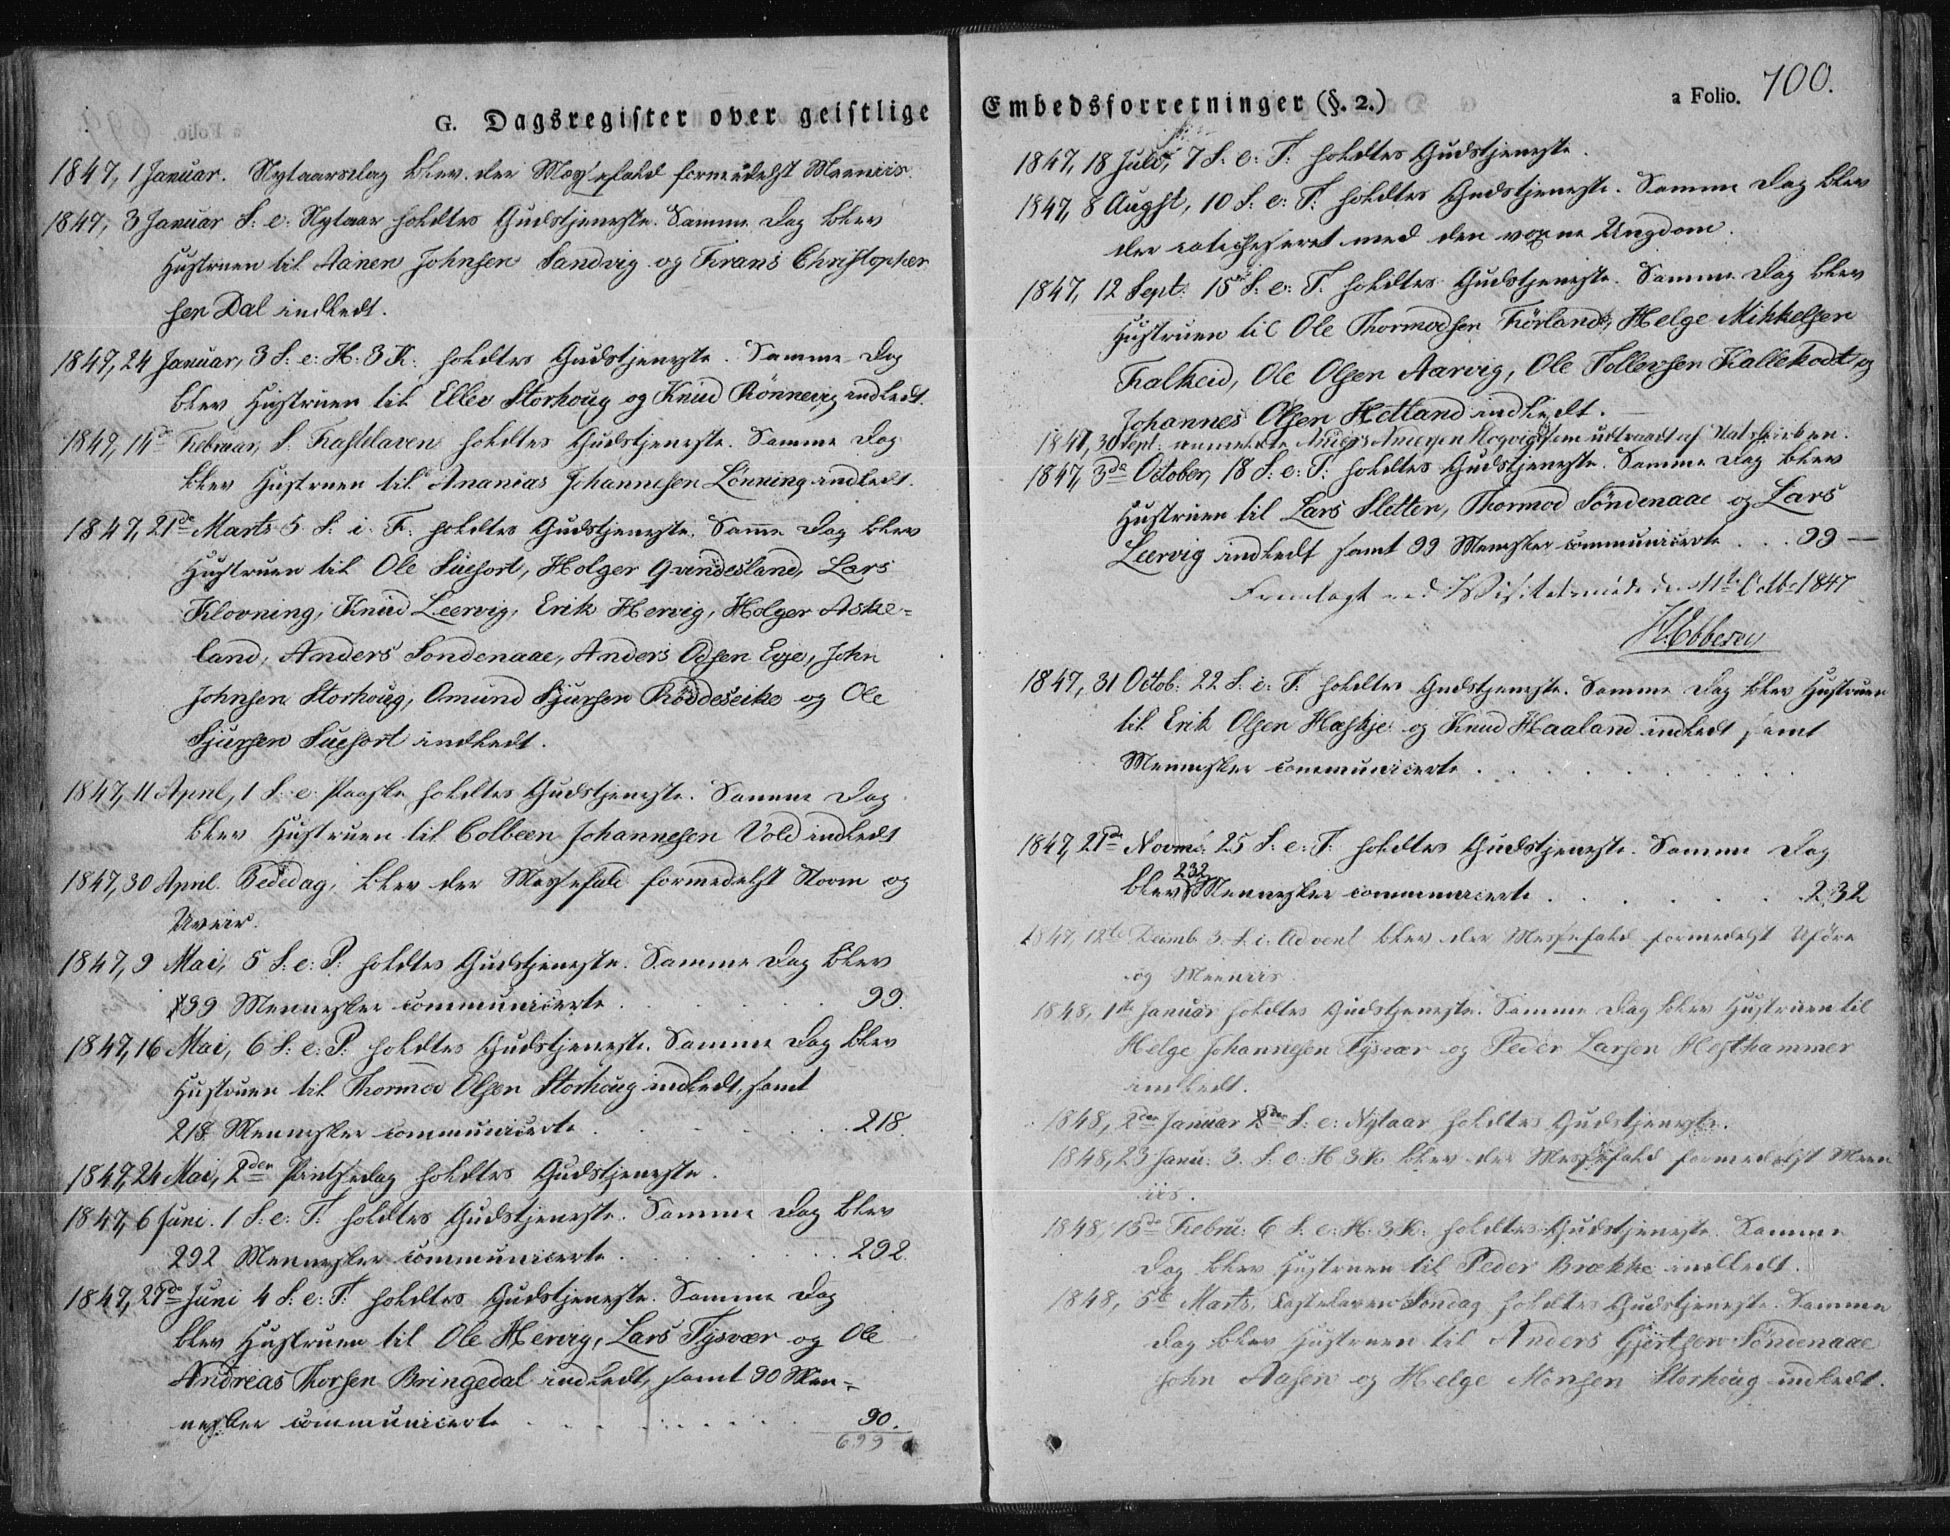 G. Dagsregister over geistlige
1847, 1 Januar. Nytaarsdag blev der Messefald formedelst Meenriis.
1847, 3 Januar S: e: Nytaar holdtes Gudstjeneste. Samme Dag blev
Hustruen til Aanen Johnsen Sandvig og Frans Christopher
sen Dal indledt.
1847, 24 Januar, 3 S: e: H: 3 K: holdtes Gudstjeneste. Samme Dag
blev Hustruen til Ellev Storhoug og Knud Rönnevig indledt.
1847, 14de Februar, S. Fastelaven holdtes Gudstjeneste. Samme Dag
blev Hustruen til Ananias Johannesen Lönning indledt.
1847, 21de Marts 5 S: i: F: holdtes Gudstjeneste. Samme Dag blev
Hustruen til Ole Suefort, Holger Qvindesland, Lars
Klovning, Knud Leervig, Erik Hervig, Holger Aske-
land, Anders Sondenaae, Anders Odsen Eye, John
Johnsen Storhoug, Omund Sjursen Röddeseike og Ole
Sjursen Suefort indledt.
1847, 11 April, 1 S: e: Paaske holdtes Gudstjeneste. Samme Dag
blev Hustruen til Colbeen Johannesen Vold indledt
1847, 30 April. Bededag, blev der Messefald formedelst Storm og
Uveir.
1847, 9 Mai, 5 S: e: P: holdtes Gudstjeneste. Samme Dag blev
99 Mennesker communicerte . . . . 99.
1847, 16 Mai, 6 S: e: P: holdtes Gudstjeneste. Samme Dag blev
Hustruen til Thormod Olsen Storhoug indledt, samt
218 Mennesker communicerte . . . . 218.
1847, 24 Mai, 2den Pintsedag holdtes Gudstjeneste.
1847, 6 Juni. 1 S: e: T: holdtes Gudstjeneste. Samme Dag blev
292 Mennesker communicerte . . . . 292.
1847, 27de Juni 4 S: e: T: holdtes Gudstjeneste. Samme Dag
blev Hustruen til Ole Hervig, Lars Tysvær og Ole
Andreas Thorsen Bringedal indledt, samt 90 Men-
nesker communicerte . . . . 90.
699
Embedsforretninger (§. 2.)
a Folio. 700.
1847, 18 Juli, 7 S: e: T: holdtes Gudstjeneste.
1847, 8 Augst, 10 S: e: T: holdtes Gudstjeneste. Samme Dag blev
der catechiseret med den voxne Ungdom.
1847, 12 Sept: 15 S: e: T: holdtes Gudstjeneste. Samme Dag blev
Hustruen til Ole Thormodsen Förland, Helge Mikkelsen
Falkeid, Ole Olsen Aarvig, Ole Tollevsen Kallekodt og
Johannes Olsen Hetland indledt.
1847, 30 Sept: anmeldte som udtraadt af Statskirken.
1847, 3de October, 18 S: e: T: holdtes Gudstjeneste. Samme Dag blev
Hustruen til Lars Sletten, Thormod Söndenaae og Lars
Leervig indledt samt 99 Mennesker communicerte . . . 99
Fremlagt ved Visitatsmøde den 11te Octbr 1847
Ebbesen
1847, 31 Octob: 22 S: e: T: holdtes Gudstjeneste. Samme Dag blev Hustruen
til Erik Olsen Haskje og Knud Haaland indledt samt
Mennesker communicerte . . . .
1847, 21de Novmb: 25 S: e: T: holdtes Gudstjeneste. Samme Dag
blev 232 Mennesker communicerte . . . . 232
1847, 12te Decmb 3 S: i: Advent blev der Messefald formedelst Uföre
og Meenriis.
1848, 1ste Januar holdtes Gudstjeneste. Samme Dag blev Hustruen til
Helge Johannesen Tysvær og Peder Larsen Hesthammer
indledt.
1848, 2den Januar S: e: Nytaar holdtes Gudstjeneste.
1848, 23 Janu: 3. S: e: H 3 K: blev der Messefald formedelst Meen
riis.
1848, 13de Febru: 6 S: e: H: 3 K: holdtes Gudstjeneste. Samme
Dag blev Hustruen til Peder Brække indledt.
1848, 5te Marts, Fastelavens Söndag holdtes Gudstjeneste. Samme
Dag blev Hustruen til Anders Gjertsen Söndenaae
John Aasen og Helge Monsen Storhoug indledt.